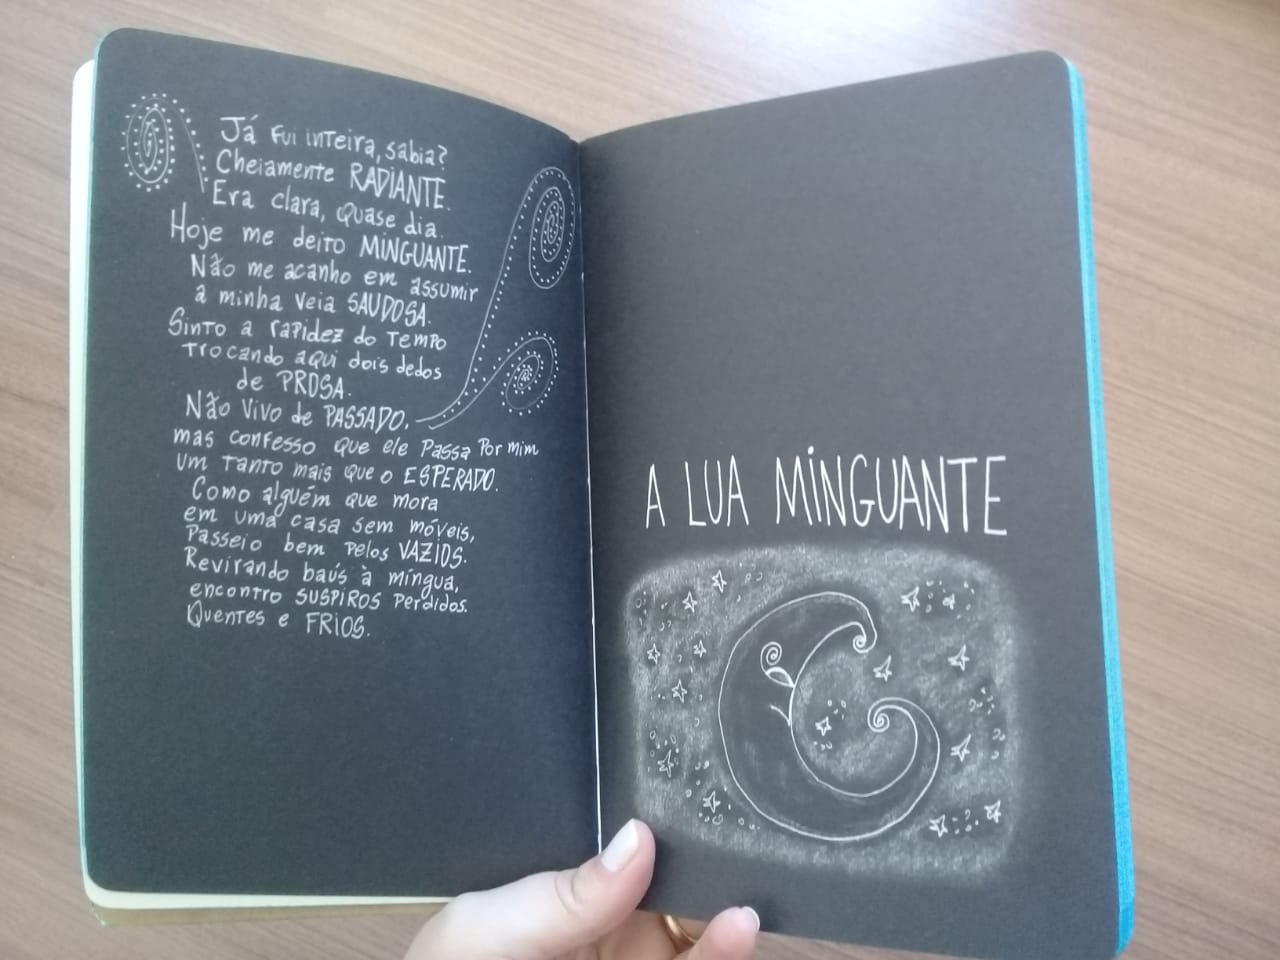 Já fui inteira, sabia?
Cheiamente RADIANTE.
Era clara, quase dia.
Hoje me deito MINGUANTE.
Não me acanho em assumir
a minha veia SAUDOSA.
Sinto a rapidez do tempo
trocando aqui dois dedos
de PROSA.
Não vivo de PASSADO,
mas confesso que ele passa por mim
um tanto mais que o ESPERADO.
Como alguém que mora
em uma casa sem móveis,
passeio bem pelos VAZIOS.
Revirando baús à míngua,
encontro SUSPIROS perdidos.
Quentes e FRIOS.
A LUA MINGUANTE